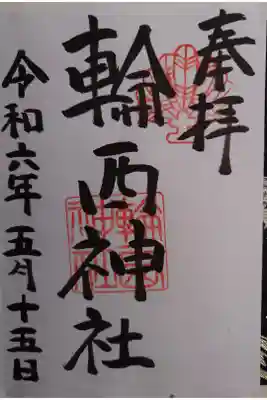 奉拝
輪西神社
令和六年五月十五日